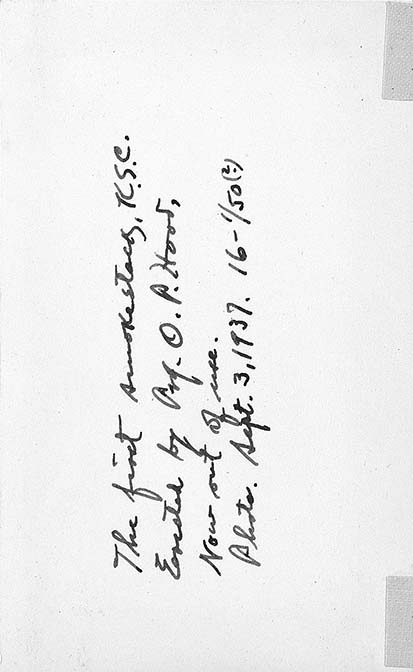 The first smokestack, K.S.C.
Erected by Prof. O. P. Hood,
Now out of use.
Photo. Sept. 3, 1937. 16-1/50(?)